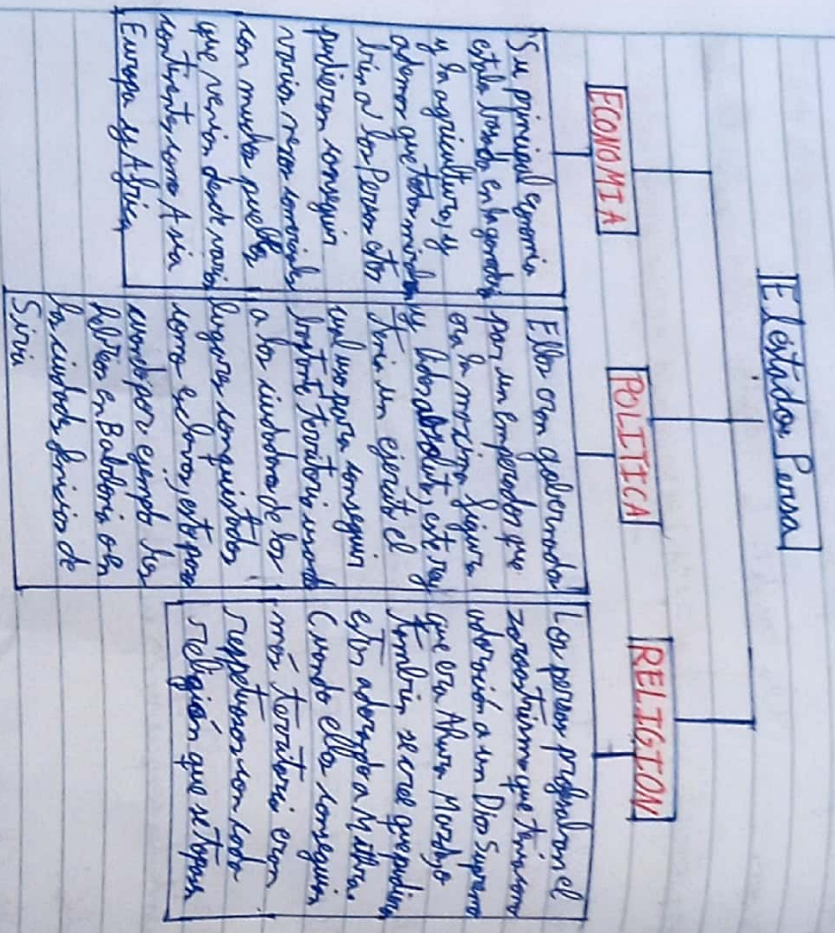 El estado Persa
ECONOMIA
Su principal economia
estaba basada en la ganaderia
y la agricultura, y
ademas que todo
bien a los Persas estos
pudieron conseguir
varios nexos comerciales
con muchos pueblos
que venian desde varios
continentes como Asia
Europa y Africa
POLITICA
Ellos eran gobernados
por un emperador que
era la maxima figura
y lider absoluto, este rey
tenia un ejercito el
cual uso para conseguir
bastante territorio usando
a los ciudadanos de los
lugares conquistados
como esclavos, esto paso
cuando por ejemplo los
Hebreos en Babilonia o en
la ciudades fenicias de
Siria
RELIGION
Los persas profesaban el
zoroastrismo que tenia como
adoración a un Dios Supremo
que era Ahura Mazda, y
tambien se cree que pudieron
estar adorando a Mithra.
Cuando ellos conseguian
más territorio eran
respetuosos con cada
religión que se topan